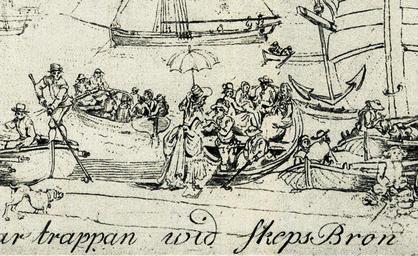 ar trappan wid SkepsBron